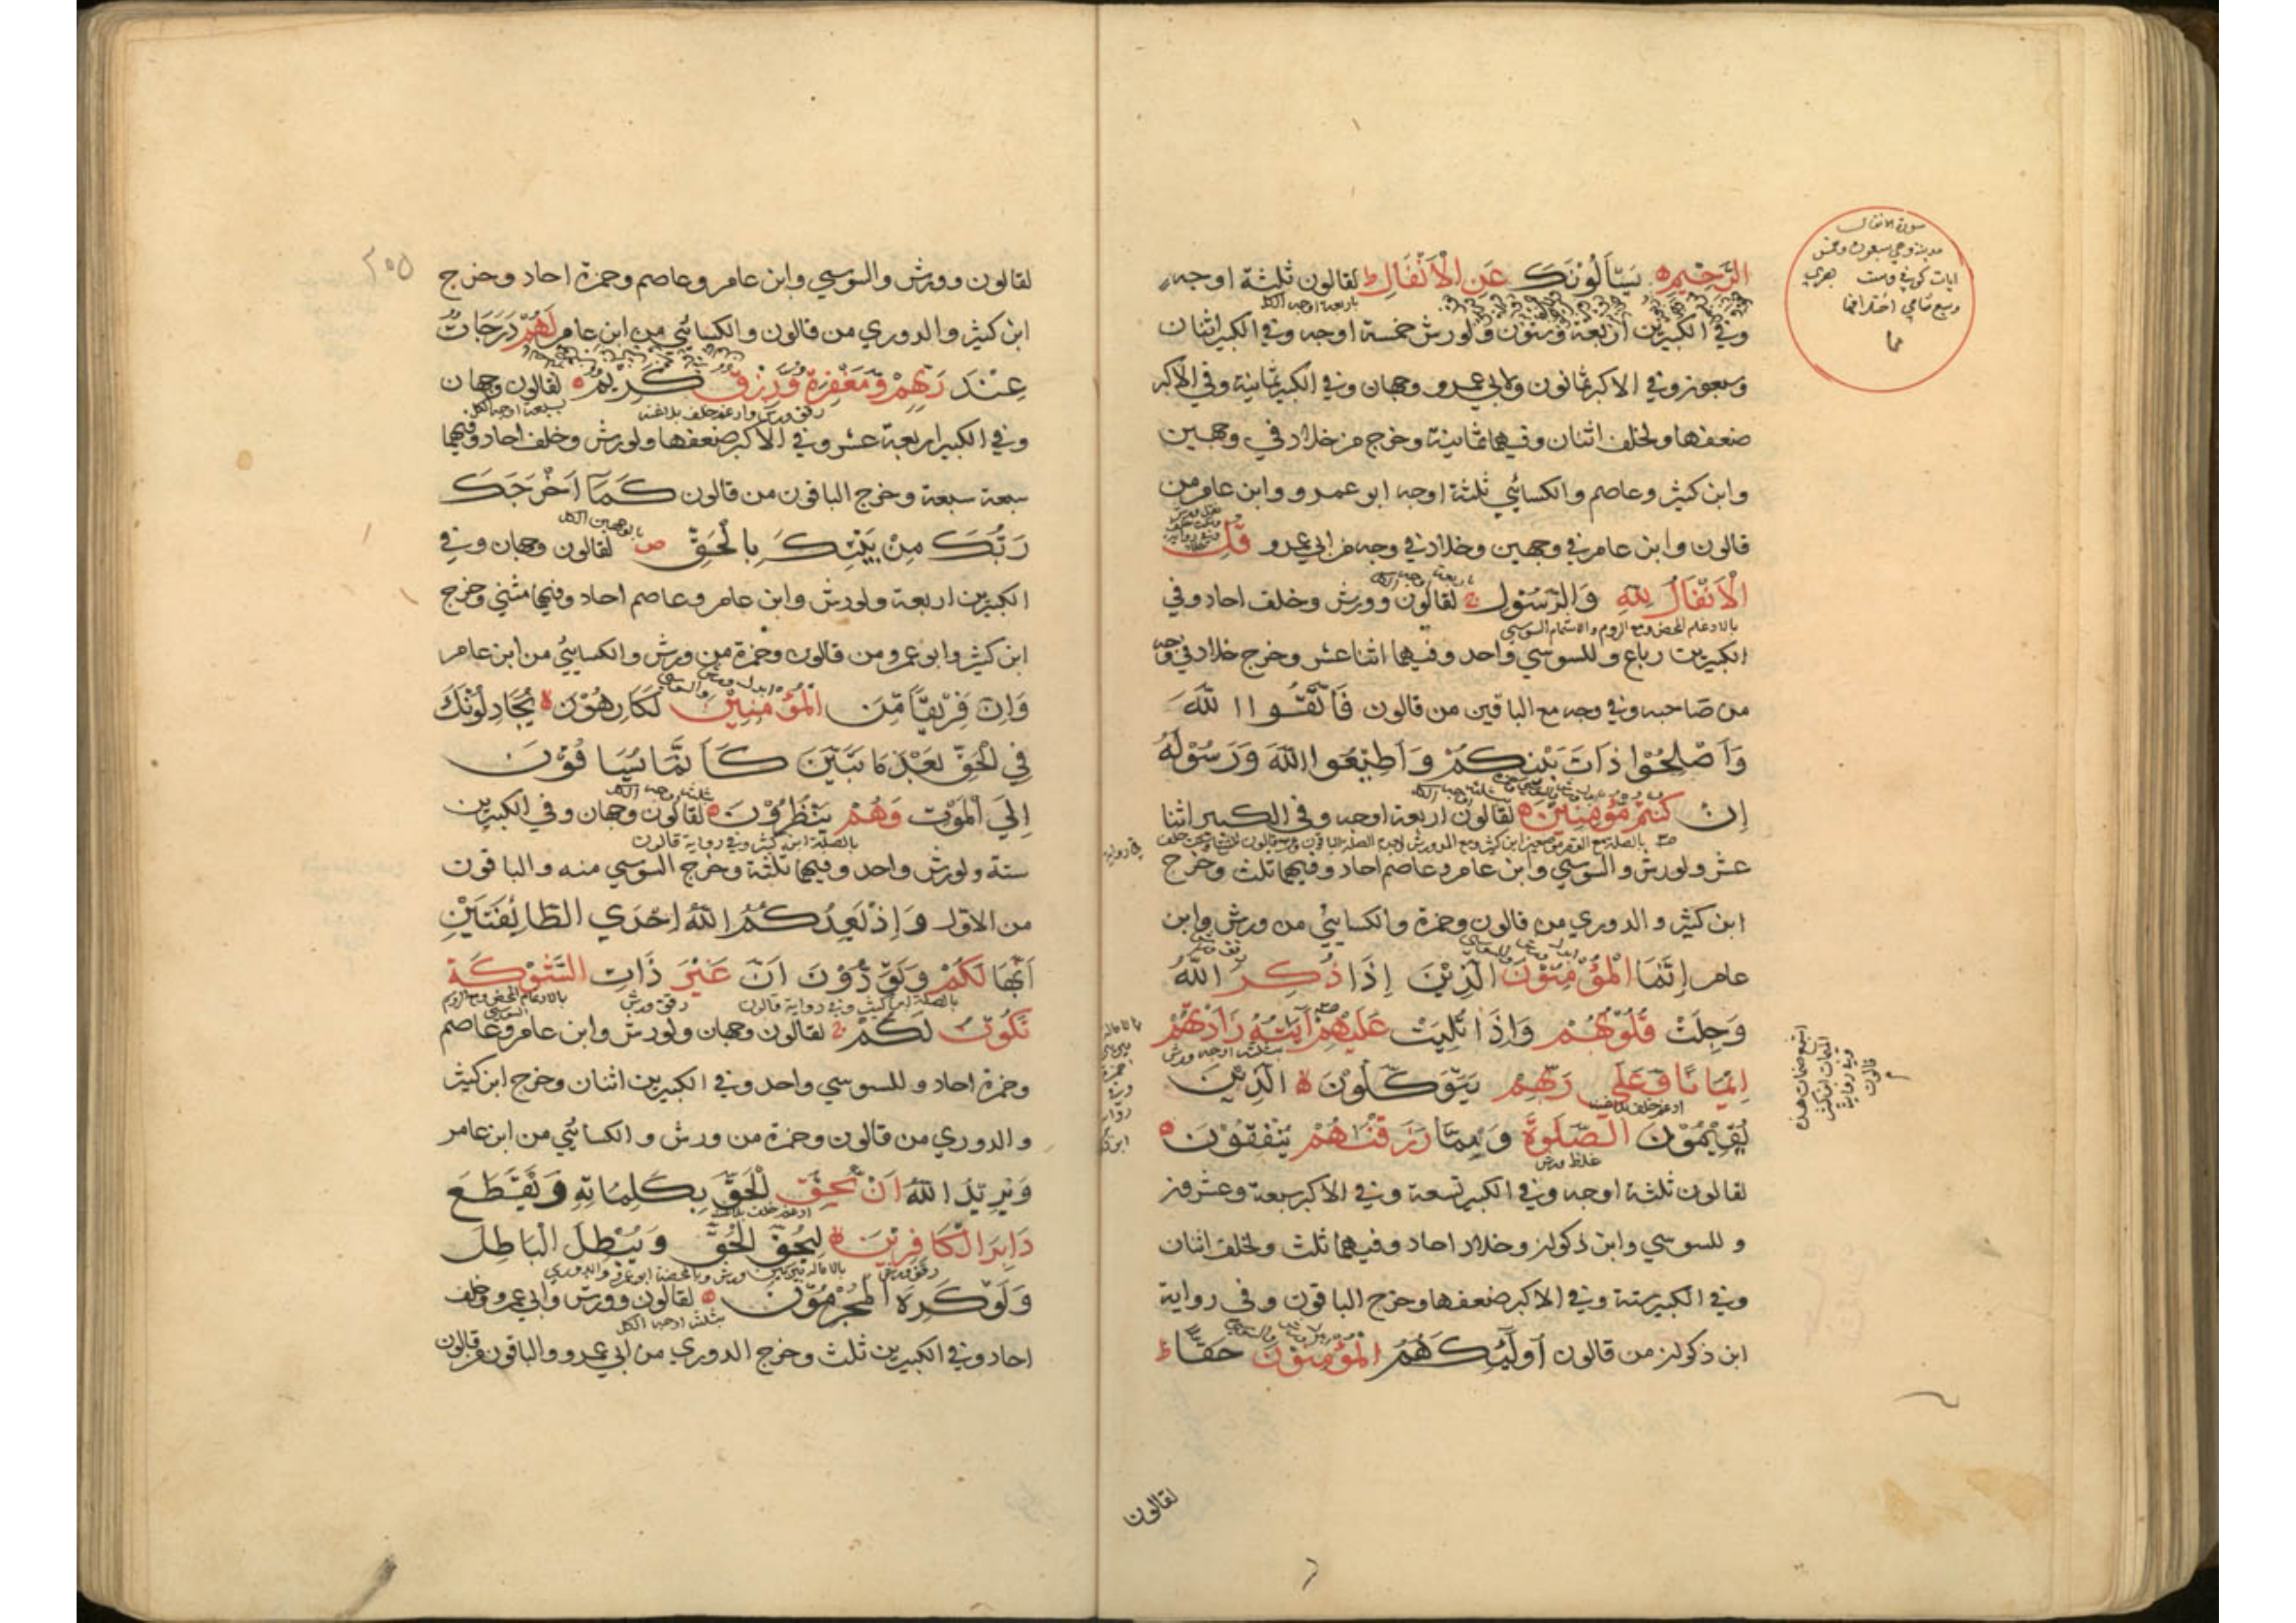 سورة الانفال
مدينة وهي سبعون وخمس
ايات كوفي وست بصري
وسبع شامي
الرَّحِيْمِ يَسْأَلُوْنَكَ عَنِ الْاَنْفَالِ ط لقالون ثلثة اوجه
باربعة اوجه الكل
وفي الكبيرين اربعة وستون ولورش خمسة اوجه وفي الكبير اثنان
وسبعون وفي الاكبر ثمانون ولابي عمرو وجهان وفي الكبير ثمانية وفي الاكبر
ضعفها ولخلف اثنان وفيهما ثمانية وخرج من خلاد في وجهين
وابن كثير وعاصم والكسائي ثلثة اوجه ابو عمرو وابن عامر من
قالون وابن عامر في وجهين وخلاد في وجه من ابي عمرو قُلِ
الْاَنْفَالُ لِلّٰهِ وَالرَّسُوْلِ ج لقالون وورش وخلف احاد وفي
بالادغام المحض ومع الروم والاشمام السوسي
الكبيرين رباع وللسوسي واحد وفيهما اثنا عشر وخرج خلاد في وجه
من صاحبه وفي وجه مع الباقين من قالون فَاتَّقُوا اللّٰهَ
وَاَصْلِحُوْا ذَاتَ بَيْنِكُمْ وَاَطِيْعُوا اللّٰهَ وَرَسُوْلَهُ
اِنْ كُنْتُمْ مُؤْمِنِيْنَ ه لقالون اربعة اوجه وفي الكبير اثنا
عشر ولورش والسوسي وابن عامر وعاصم احاد وفيهما ثلث وخرج
ابن كثير والدوري من قالون وحمزة والكسائي من ورش وابن
عامر اِنَّمَا الْمُؤْمِنُوْنَ الَّذِيْنَ اِذَا ذُكِرَ اللّٰهُ
وَجِلَتْ قُلُوْبُهُمْ وَاِذَا تُلِيَتْ عَلَيْهِمْ آيَتُهُ زَادَتْهُمْ
بثلثة اوجه ورش
اِيْمَانًا وَّعَلٰي رَبِّهِمْ يَتَوَكَّلُوْنَ ه الَّذِيْنَ
ادغم خلف بلاغنة
يُقِيْمُوْنَ الصَّلٰوةَ وَمِمَّا رَزَقْنٰهُمْ يُنْفِقُوْنَ ه
غلظ ورش
لقالون ثلثة اوجه وفي الكبير تسعة وفي الاكبر سبعة وعشرون
وللسوسي وابن ذكوان وخلاد احاد وفيهما ثلث ولخلف اثنان
وفي الكبير ستة وفي الاكبر ضعفها وخرج الباقون وفي رواية
ابن ذكوان من قالون اُولٰئِكَ هُمُ الْمُؤْمِنُوْنَ حَقًّا ط
لقالون
٢٥٥
لقالون وورش والسوسي وابن عامر وعاصم وحمزة احاد وخرج
ابن كثير والدوري من قالون والكسائي من ابن عامر لَهُمْ دَرَجَاتٌ
عِنْدَ رَبِّهِمْ وَمَغْفِرَةٌ وَّرِزْقٌ كَرِيْمٌ ه لقالون وجهان
رقق ورش وادغم خلف بلاغنة
بسبعة اوجه الكل
وفي الكبير اربعة عشر وفي الاكبر ضعفها ولورش وخلف احاد وفيهما
سبعة سبعة وخرج الباقون من قالون كَمَآ اَخْرَجَكَ
رَبُّكَ مِنْ بَيْتِكَ بِالْحَقِّ ص لقالون وجهان وفي
الكبيرين اربعة ولورش وابن عامر وعاصم احاد وفيهما مثني وخرج
ابن كثير وابو عمرو من قالون وحمزة من ورش والكسايي من ابن عامر
وَاِنَّ فَرِيْقًا مِّنَ الْمُؤْمِنِيْنَ لَكَارِهُوْنَ ه يُجَادِلُوْنَكَ
فِي الْحَقِّ بَعْدَ مَا تَبَيَّنَ كَاَنَّمَا يُسَاقُوْنَ
اِلَي الْمَوْتِ وَهُمْ يَنْظُرُوْنَ ه لقالون وجهان وفي الكبيرين
بالصلة ابن كثير وفي رواية قالون
ستة ولورش واحد وفيهما ثلثة وخرج السوسي منه والباقون
من الاول وَاِذْ يَعِدُكُمُ اللّٰهُ اِحْدَي الطَّائِفَتَيْنِ
اَنَّهَا لَكُمْ وَتَوَدُّوْنَ اَنَّ غَيْرَ ذَاتِ الشَّوْكَةِ
بالصلة ابن كثير وفي رواية قالون
رقق ورش
بالادغام المحض ومع الروم السوسي
تَكُوْنُ لَكُمْ ج لقالون وجهان ولورش وابن عامر وعاصم
وحمزة احاد وللسوسي واحد وفي الكبيرين اثنان وخرج ابن كثير
والدوري من قالون وحمزة من ورش والكسائي من ابن عامر
وَيُرِيْدُ اللّٰهُ اَنْ يُّحِقَّ الْحَقَّ بِكَلِمَاتِهِ وَيَقْطَعَ
ادغم خلف بلاغنة
دَابِرَ الْكَافِرِيْنَ ه لِيُحِقَّ الْحَقَّ وَيُبْطِلَ الْبَاطِلَ
وَلَوْ كَرِهَ الْمُجْرِمُوْنَ ه لقالون وورش وابي عمرو وخلف
بثلثة اوجه الكل
احاد وفي الكبيرين ثلث وخرج الدوري من ابي عمرو والباقون من قالون